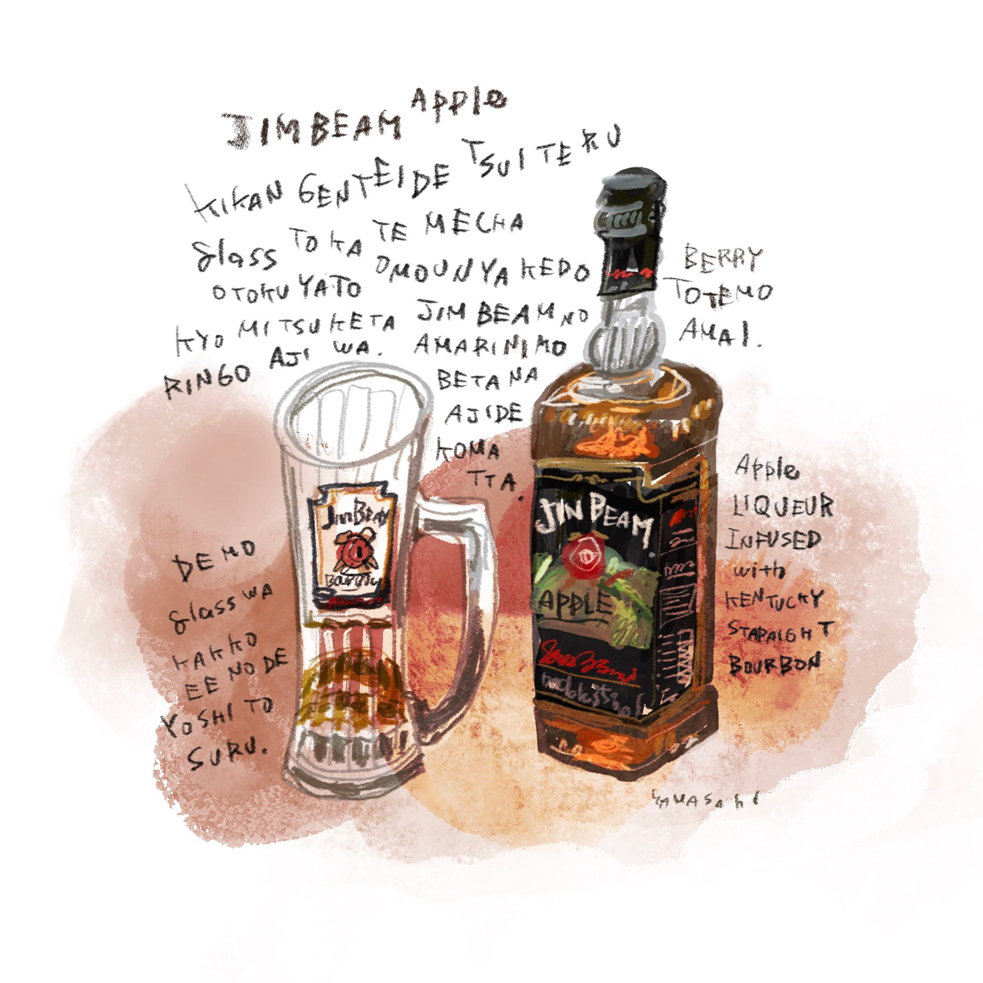 JIMBEAM Apple
KIKAN GENTEIDE TSUITERU
glass TOKA TE MECHA
OTOKUYATO OMOUNYAKEDO
KYO MITSUKETA JIM BEAM NO
RINGO AJI WA. AMARINIMO
BETANA
AJIDE
KOMA
TTA.
BERRY
TOTEMO
AMAI.
DEMO
glass WA
KAKKO
EE NODE
YOSHI TO
SURU.
JIM BEAM
JIM BEAM.
APPLE
Apple
LIQUEUR
INFUSED
with
KENTUCKY
STARAIGHT
BOURBON
YAMASAKI